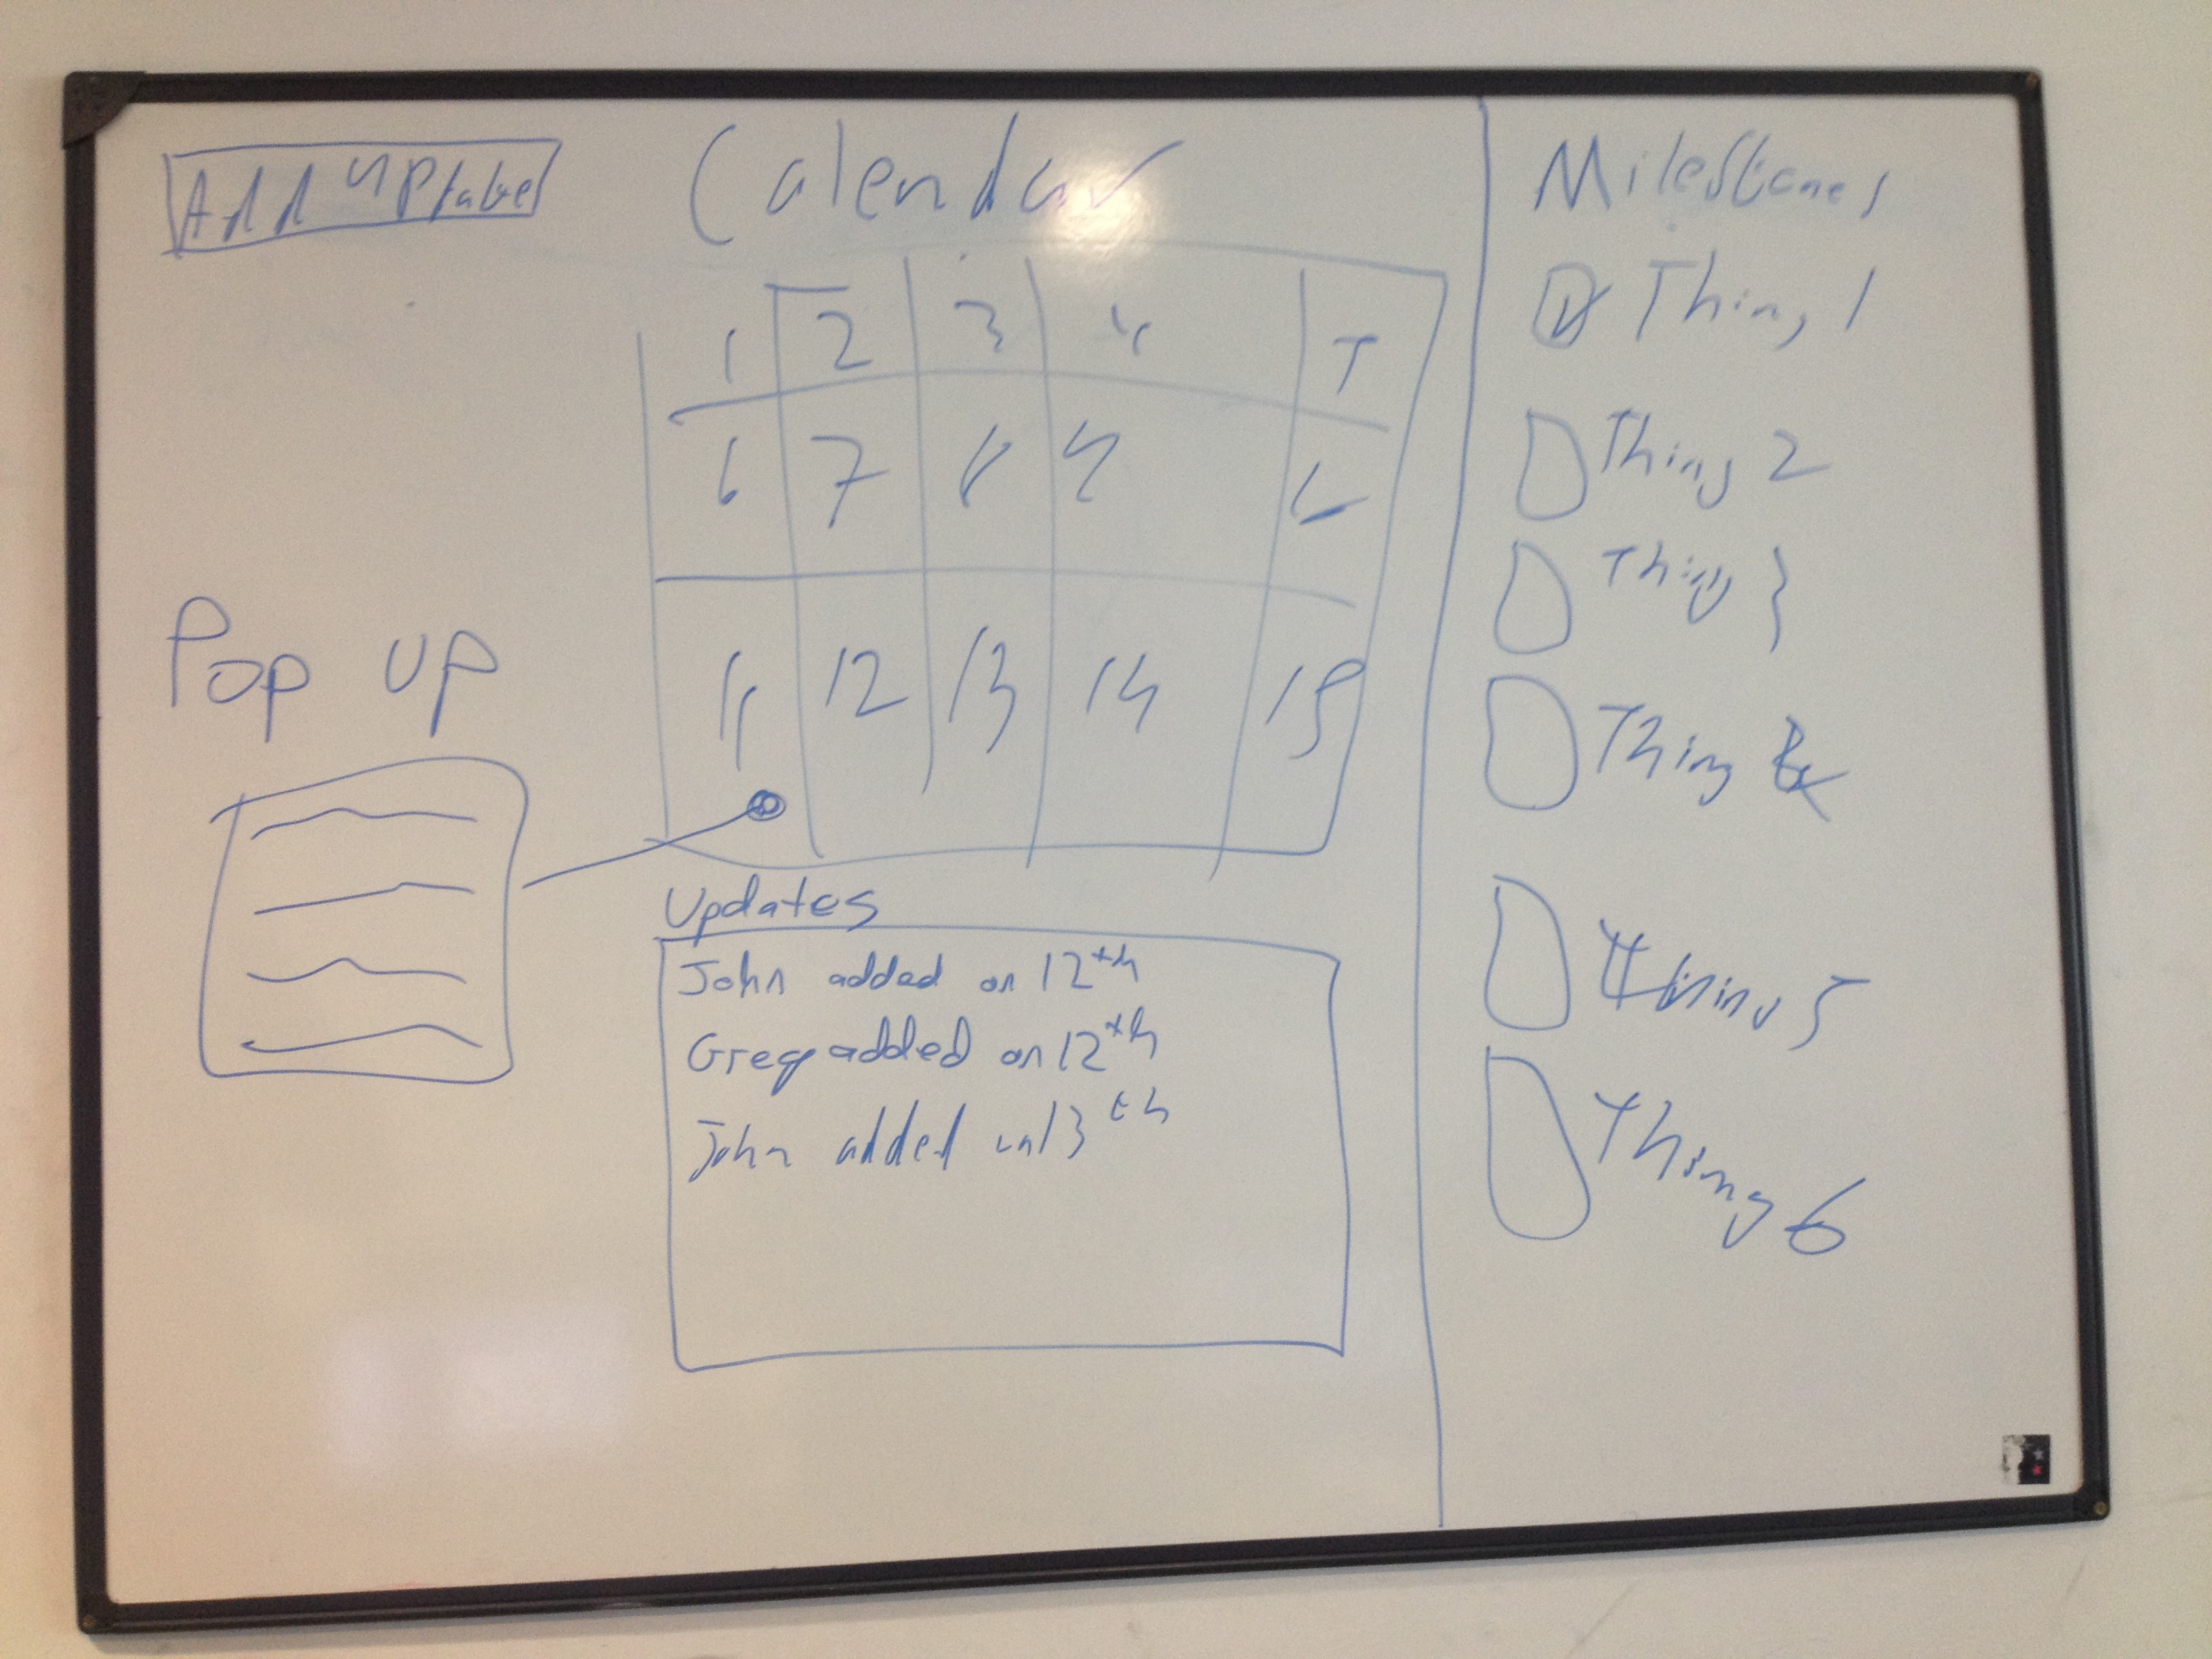 Add Update
Calendar
1 2 3 4 5
6 7 8 9
11 12 13 14 15
Pop up
Updates
John added on 12th
Greg added on 12th
John added on 13th
Milestones
Thing 1
Thing 2
Thing 3
Thing 4
Thing 5
Thing 6